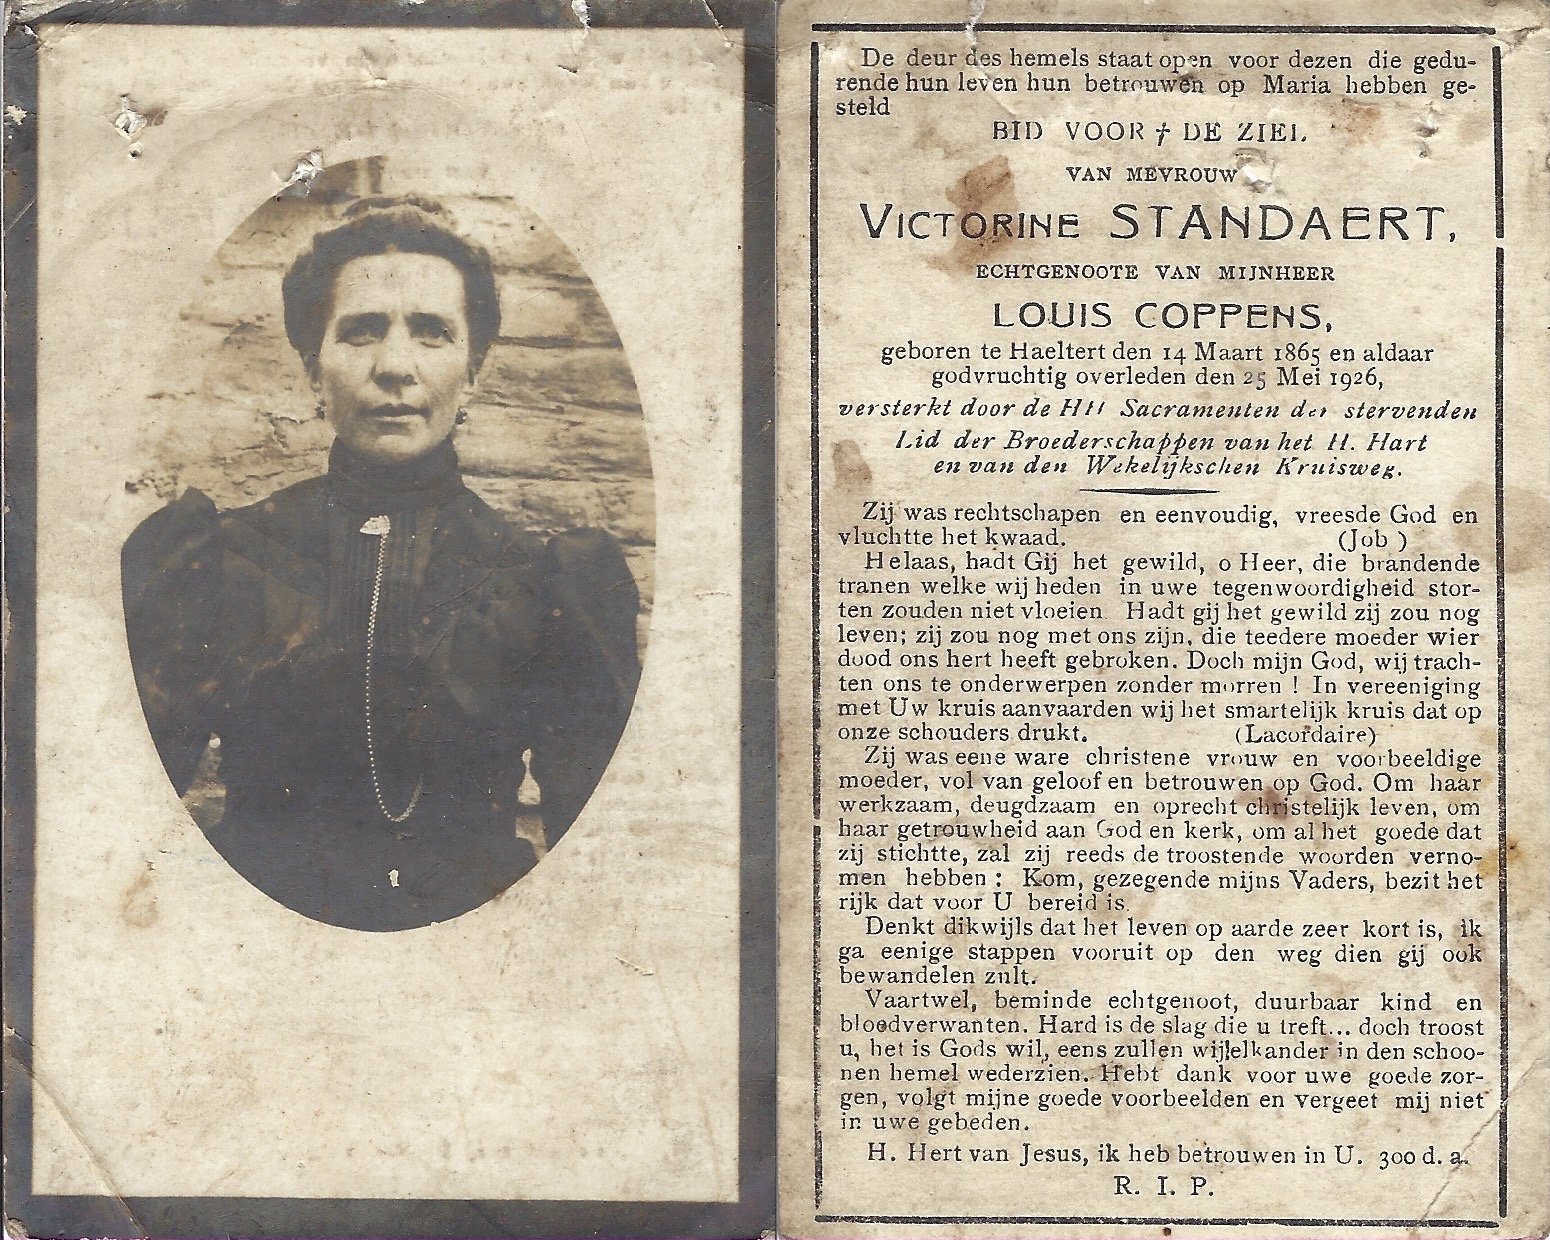 De deur des hemels staat open voor dezen die gedu-
rende hun leven hun betrouwen op Maria hebben ge-
steld
BID VOOR † DE ZIEL
VAN MEVROUW
VICTORINE STANDAERT,
ECHTGENOOTE VAN MIJNHEER
LOUIS COPPENS,
geboren te Haeltert den 14 Maart 1865 en aldaar
godvruchtig overleden den 25 Mei 1926,
versterkt door de HH Sacramenten der stervenden
Lid der Broederschappen van het H. Hart
en van den Wekelijkschen Kruisweg.
Zij was rechtschapen en eenvoudig, vreesde God en
vluchtte het kwaad. (Job )
Helaas, hadt Gij het gewild, o Heer, die brandende
tranen welke wij heden in uwe tegenwoordigheid stor-
ten zouden niet vloeien. Hadt gij het gewild zij zou nog
leven; zij zou nog met ons zijn, die teedere moeder wier
dood ons hert heeft gebroken. Doch mijn God, wij trach-
ten ons te onderwerpen zonder morren ! In vereeniging
met Uw kruis aanvaarden wij het smartelijk kruis dat op
onze schouders drukt. (Lacordaire)
Zij was eene ware christene vrouw en voorbeeldige
moeder, vol van geloof en betrouwen op God. Om haar
werkzaam, deugdzaam en oprecht christelijk leven, om
haar getrouwheid aan God en kerk, om al het goede dat
zij stichtte, zal zij reeds de troostende woorden verno-
men hebben : Kom, gezegende mijns Vaders, bezit het
rijk dat voor U bereid is.
Denkt dikwijls dat het leven op aarde zeer kort is, ik
ga eenige stappen vooruit op den weg dien gij ook
bewandelen zult.
Vaartwel, beminde echtgenoot, duurbaar kind en
bloedverwanten. Hard is de slag die u treft... doch troost
u, het is Gods wil, eens zullen wij elkander in den schoo-
nen hemel wederzien. Hebt dank voor uwe goede zor-
gen, volgt mijne goede voorbeelden en vergeet mij niet
in uwe gebeden.
H. Hert van Jesus, ik heb betrouwen in U. 300 d. a.
R. I. P.